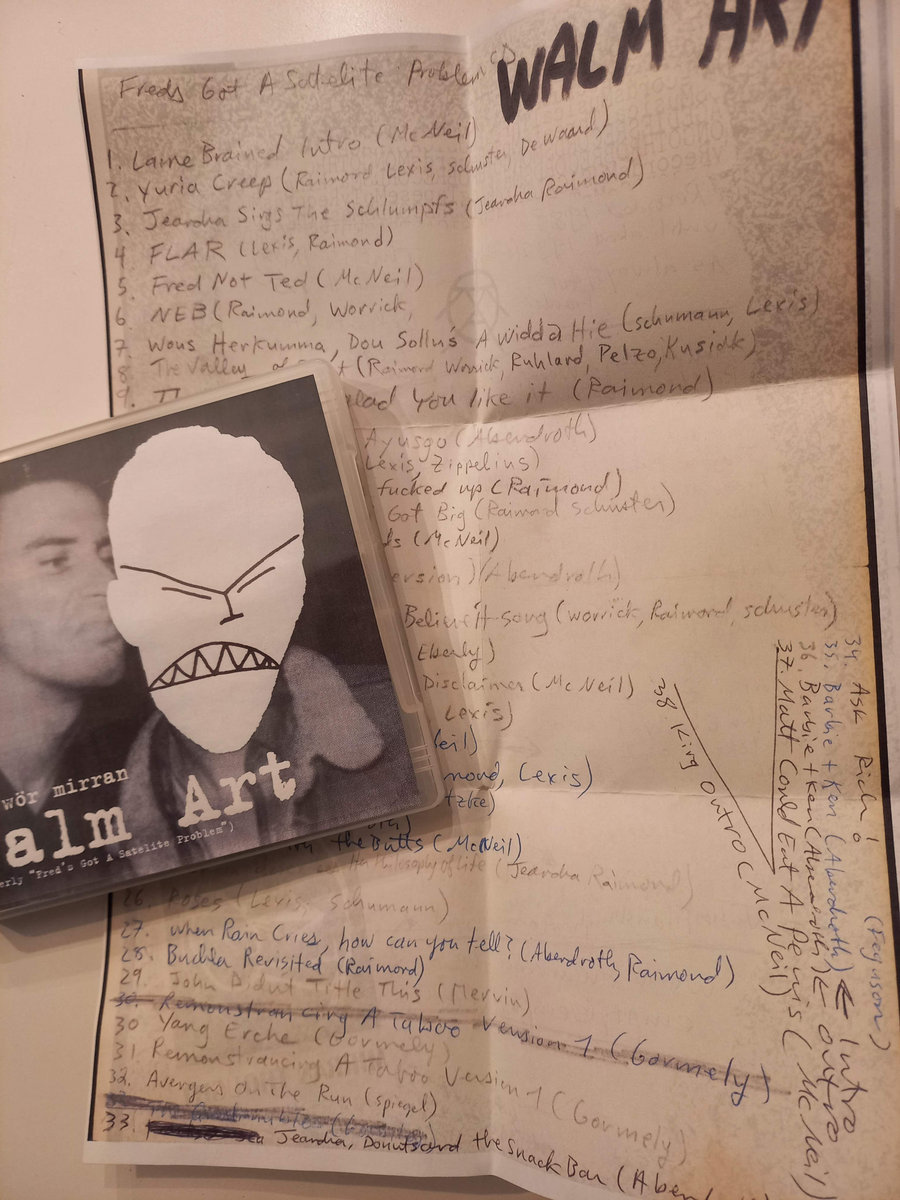 Freds Got A Satelite Problem CD
WALM ART
1. Laine Brained Intro (McNeil)
2. Yuria Creep (Raimond Lexis, Schuster, De Waard)
3. Jeardha Sings The Schlumpfs (Jeardha Raimond)
4 FLAR (Lexis, Raimond)
5. Fred Not Ted (McNeil)
6 NEB (Raimond, Worrick,
7. Wous Herkumma, Dou Sollns A widda Hie (Schumann, Lexis)
8 The Valley (Raimond Worrick, Ruhland, Pelzo, Kusiak)
9. glad You like it (Raimond)
Ayusgo (Abendroth)
Lexis, Zippelius)
fucked up (Raimond)
Got Big (Raimond Schuster)
ds (McNeil)
ersion) (Abendroth)
Believe it song (Worrick, Raimond, Schuster)
Eberly)
Disclaimer (McNeil)
Lexis)
Neil)
mond, Lexis)
tzke)
oth)
the Butts (McNeil)
Philosophy of Life (Jeardha Raimond)
26. Poses (Lexis, Schumann)
27. When Rain Cries, how can you tell? (Abendroth, Raimond)
28. Buchla Revisited (Raimond)
29. John Didnt Title This (Mervin)
30. Remonstrancing A Taboo Version 1 (Gormely)
30 Yang Erche (Gormely)
31. Remonstrancing A Taboo Version 1 (Gormely)
32. Avengers On The Run (Spiegel)
33. Jeardha, Donuts and the Snack Bar (Aben
34. Ask Rich! (Fegnson)
35. Barbie + Ken (Abendroth) ← Intro
36. Barbie + Ken (Abendroth) ← Outro
37. Matt Could Eat A Penis (McNeil)
38. King Outro (McNeil)
wör mirran
alm Art
erly "Fred's Got A Satelite Problem")